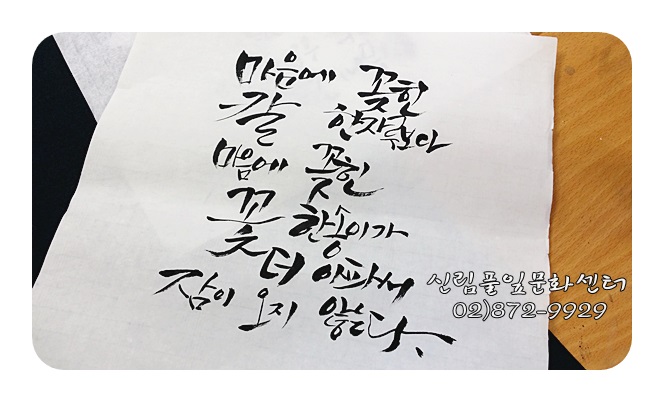 마음에 꽂힌
칼 한자루보다
마음에 꽂힌
꽃 한송이가
더 아파서
잠이 오지 않는다.
신림풀잎문화센터
02)872-9929